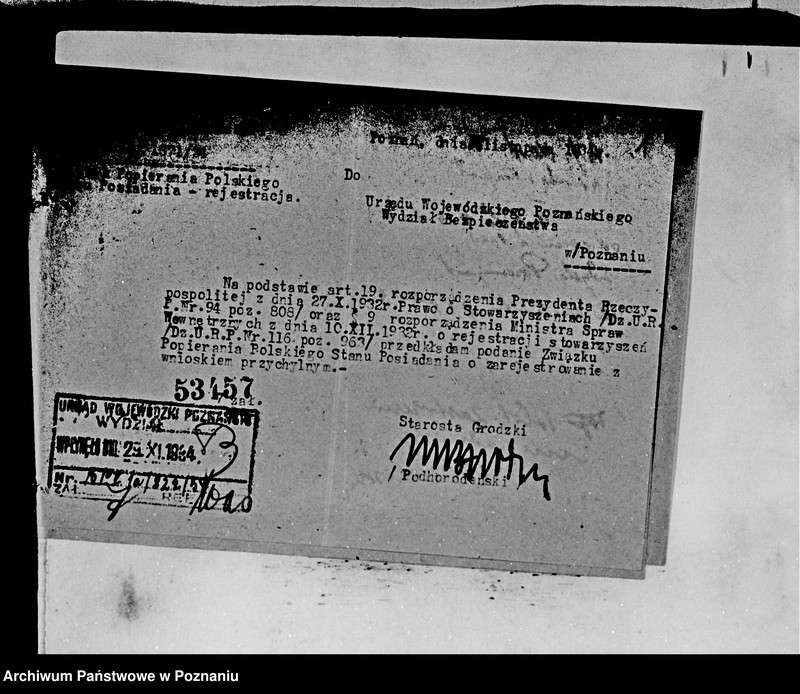 Poznań, dnia listopada 193 r.
Popierania Polskiego
Posiadania - rejestracja.
Do
Urzędu Wojewódzkiego Poznańskiego
Wydział Bezpieczeństwa
w/Poznaniu
Na podstawie art.19. rozporządzenia Prezydenta Rzeczy-
pospolitej z dnia 27.X.1932r.Prawo o Stowarzyszeniach /Dz.U.R.
P.Nr.94 poz. 808/ oraz § 9 rozporządzenia Ministra Spraw
Wewnętrznych z dnia 10.XII.1932r. o rejestracji stowarzyszeń
/Dz.U.R.P.Nr.116 poz. 963/ przedkładam podanie Związku
Popierania Polskiego Stanu Posiadania o zarejestrowanie z
wnioskiem przychylnym.-
53457
zał.
URZĄD WOJEWÓDZKI POZNAŃSKI
WYDZIAŁ
WPŁYNĘŁO DNIA 29.XI.1934.
B
Nr.
ZAŁ. REF.
Starosta Grodzki
/ Podhorodeński
Archiwum Państwowe w Poznaniu